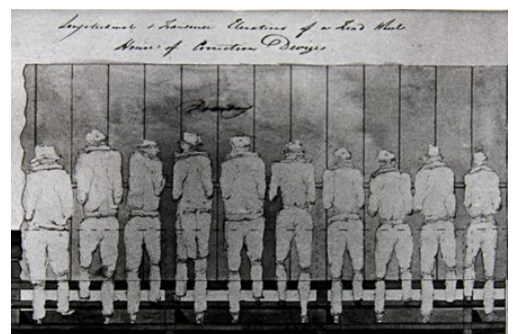 Longitudinal & Transverse Elevations of a Tread Wheel
House of Correction Devizes